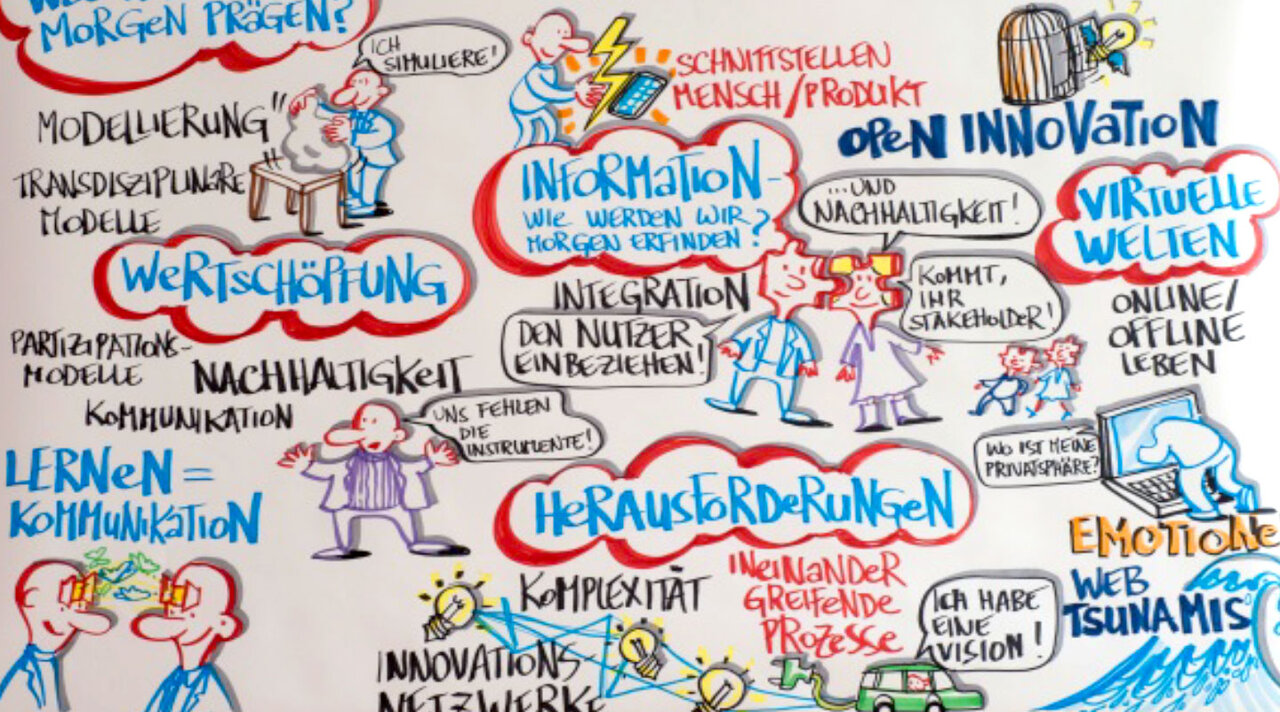 MORGEN PRÄGEN?
ICH
SIMULIERE!
MODELLIERUNG
TRANSDISZIPLINÄRE
MODELLE
SCHNITTSTELLEN
MENSCH/PRODUKT
OPEN INNOVATION
INFORMATION-
WIE WERDEN WIR
MORGEN ERFINDEN?
...UND
NACHHALTIGKEIT!
VIRTUELLE
WELTEN
WERTSCHÖPFUNG
INTEGRATION
DEN NUTZER
EINBEZIEHEN!
KOMMT,
IHR
STAKEHOLDER!
ONLINE/
OFFLINE
LEBEN
PARTIZIPATIONS-
MODELLE
NACHHALTIGKEIT
KOMMUNIKATION
UNS FEHLEN
DIE
INSTRUMENTE!
LERNEN =
KOMMUNIKATION
HERAUSFORDERUNGEN
WO IST MEINE
PRIVATSPHÄRE?
EMOTIONE
KOMPLEXITÄT
INEINANDER
GREIFENDE
PROZESSE
ICH HABE
EINE
VISION!
WEB
TSUNAMIS
INNOVATIONS-
NETZWERKE